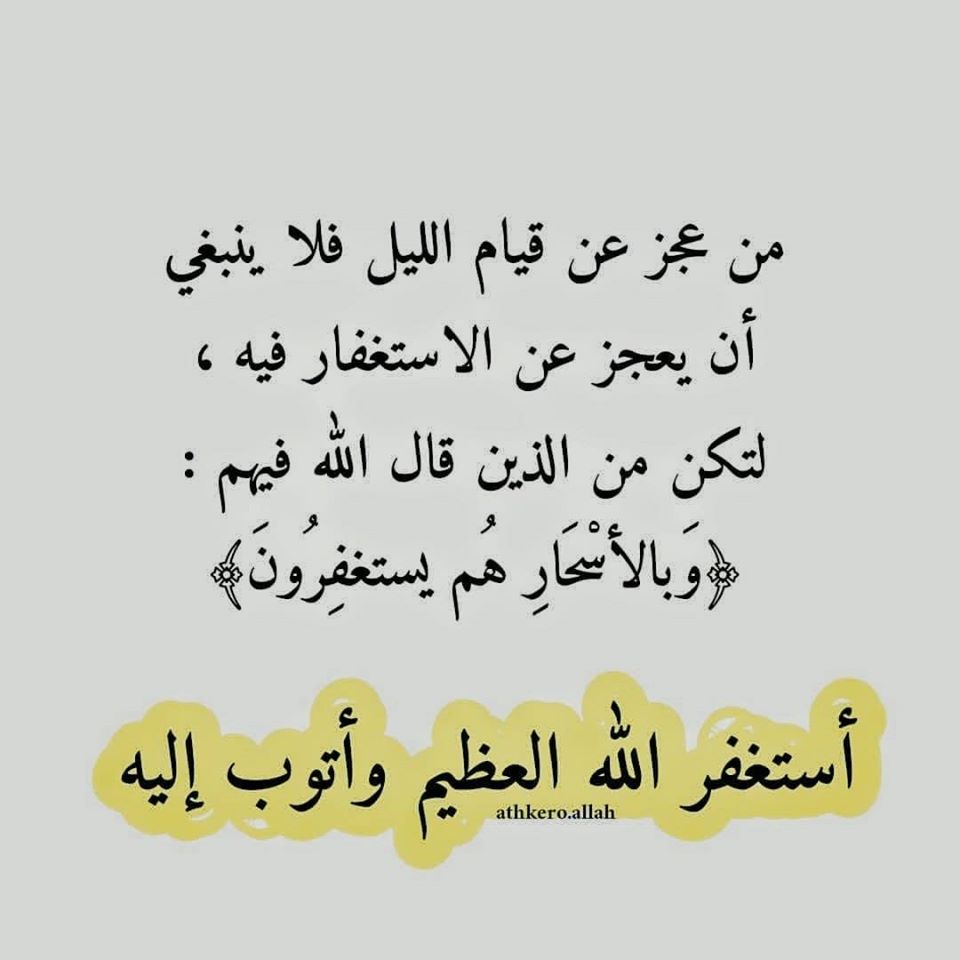 من عجز عن قيام الليل فلا ينبغي
أن يعجز عن الاستغفار فيه ،
لتكن من الذين قال الله فيهم :
﴿وَبالأسْحَارِ هُم يستغفِرُونَ﴾
أستغفر الله العظيم وأتوب إليه
athkero.allah